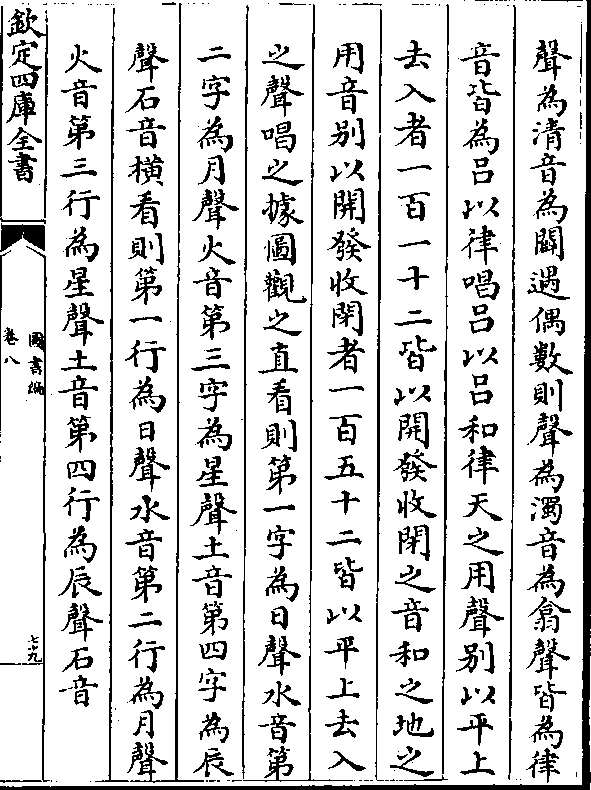 聲為清音為闢遇偶數則聲為濁音為翕聲皆為律
音皆為呂以律唱呂以呂和律天之用聲别以平上
去入者一百一十二皆以開發收閉之音和之地之
用音别以開發收閉者一百五十二皆以平上去入
之聲唱之據圖觀之直看則第一字為日聲水音第
二字為月聲火音第三字為星聲土音第四字為辰
聲石音橫看則第一行為日聲水音第二行為月聲
火音第三行為星聲土音第四行為辰聲石音
欽定四庫全書
圖書編
卷八
七十九